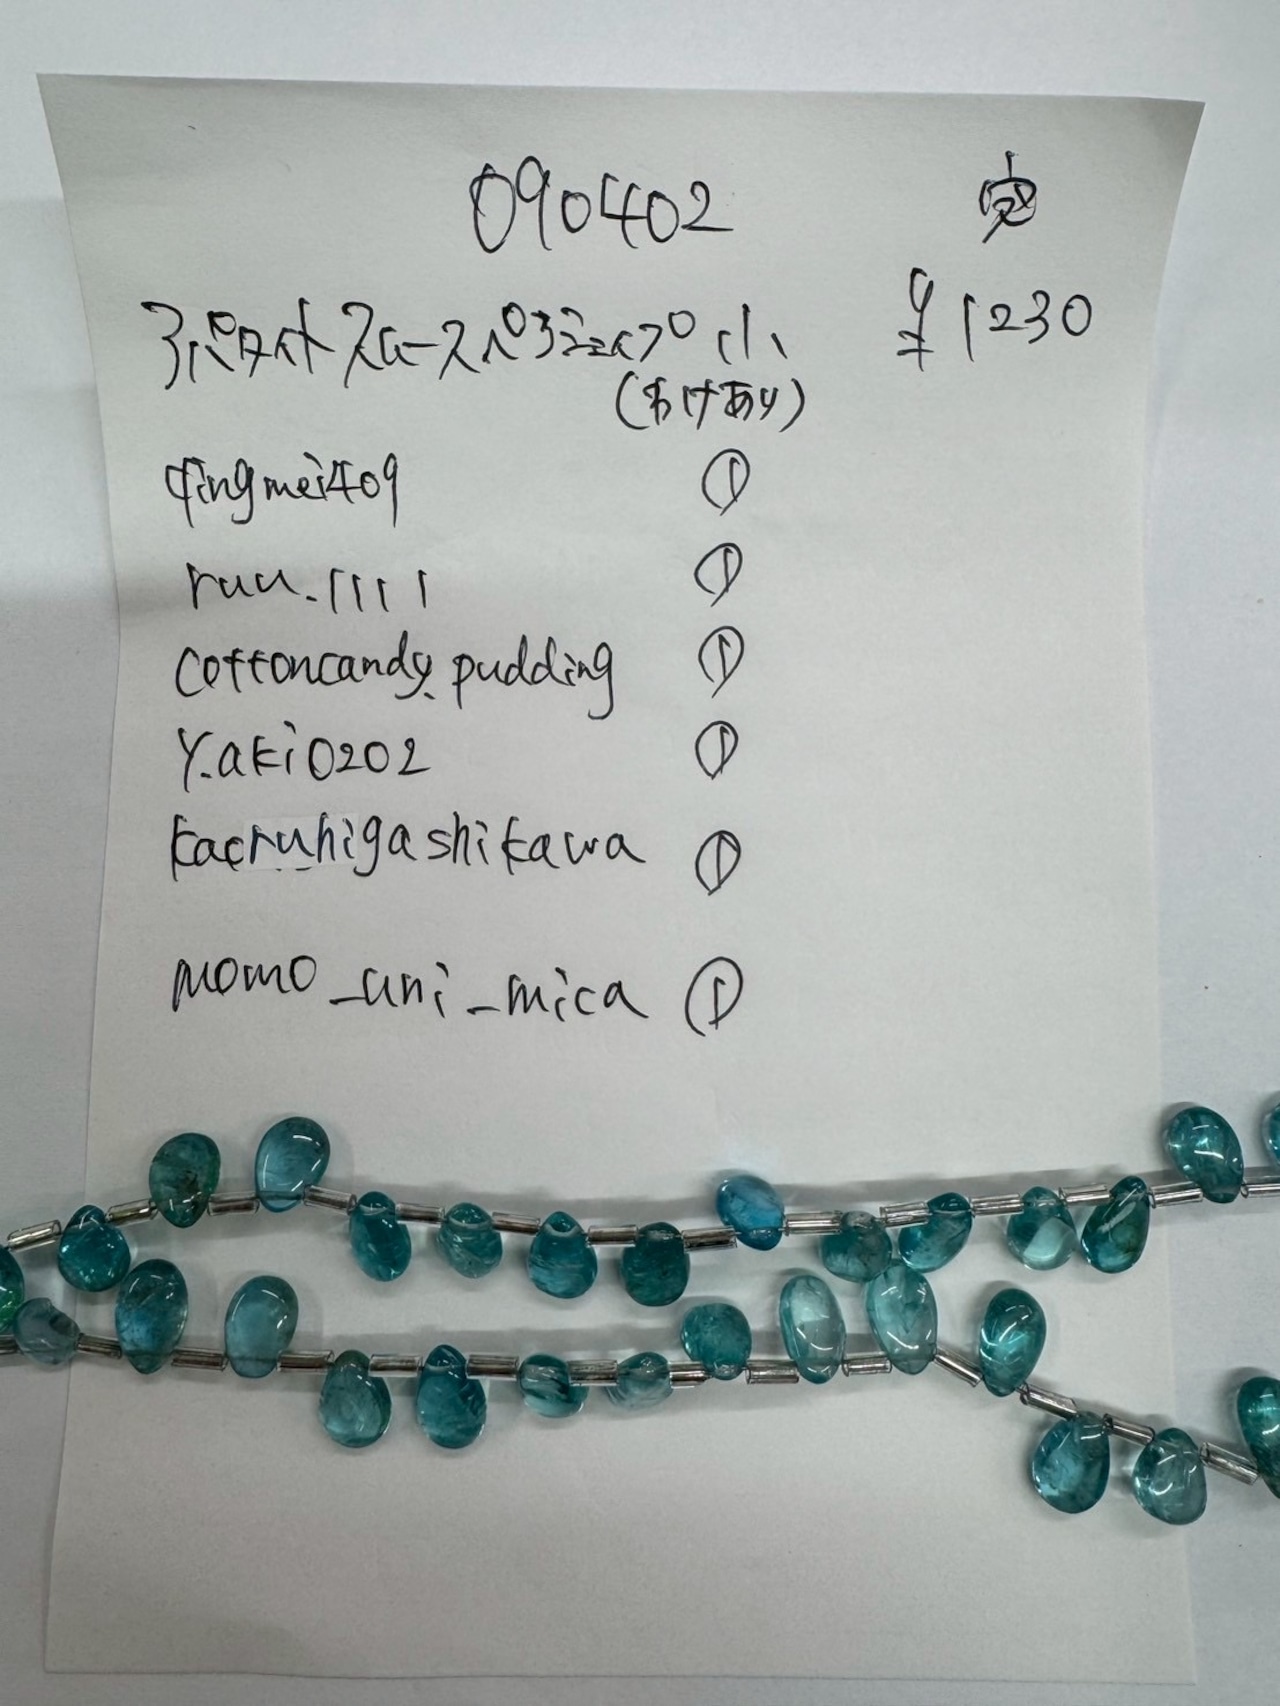 090402 完
アパタイト スムースペアシェイプ 小 ¥1230
(わけあり)
qingmei409 ①
ruu.1111 ①
cottoncandy.pudding ①
y.aki0202 ①
kaoruhigashikawa ①
momo_uni_mica ①